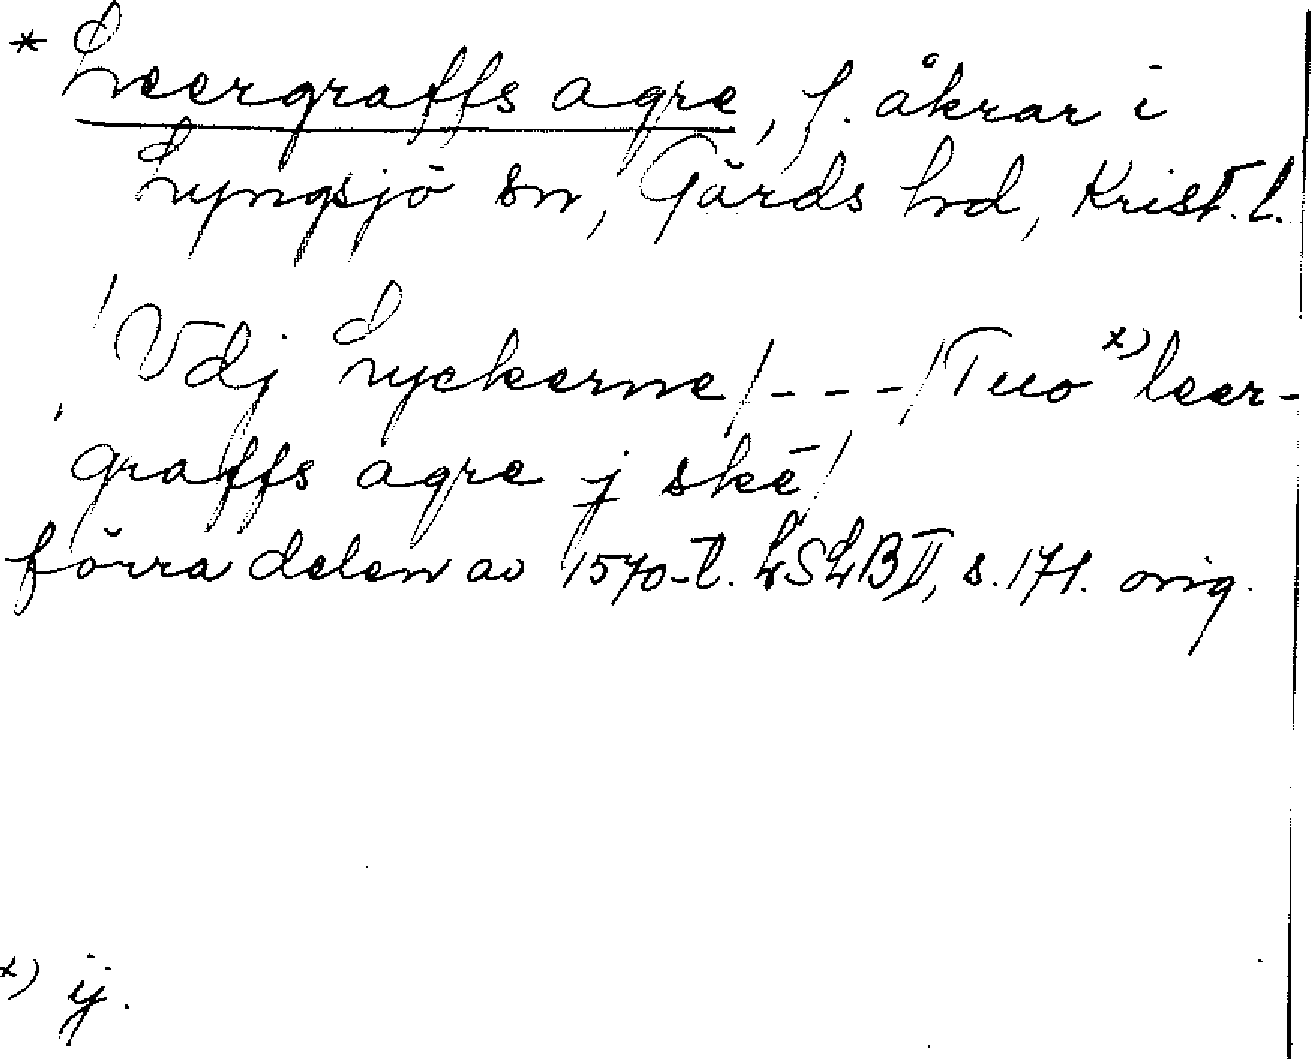 * Leergraffs agre, f. åkrar i
Lyngsjö sn, Gärds hd, Krist. l.
/Vdj Lyckerne/---/Tuo x) leer-
graffs agre j skē/
förra delen av 1570-t. LSLB II, s. 171. orig.
x) ij.